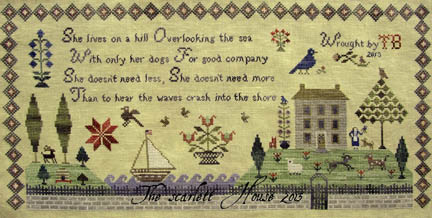 She lives on a hill Overlooking the sea
With only her dogs For good company
She doesn't need less, She doesn't need more
Than to hear the waves crash into the shore
Wrought by TB
2013
The Scarlett House 2013